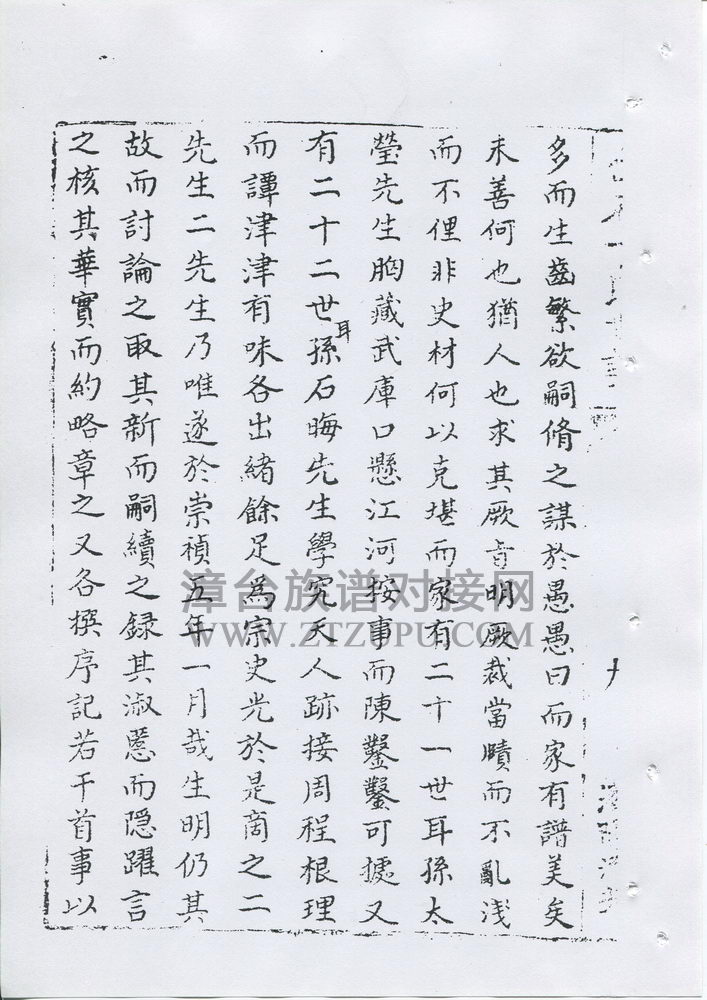 多而生齒繁欲嗣脩之謀於愚愚曰而家有譜美矣
未善何也猶人也求其厥旨明厥裁當賾而不亂淺
而不俚非史材何以克堪而家有二十一世耳孫太
瑩先生胸藏武庫口懸江河按事而陳鑿鑿可據又
有二十二世耳孫石晦先生學究天人跡接周程根理
而譚津津有味各出緒餘足為宗史光於是啇之二
先生二先生乃唯遂於崇禎五年一月哉生明仍其
故而討論之取其新而嗣續之録其淑慝而隠躍言
之核其華實而約略章之又各撰序記若干首事以
漳台族谱对接网
WWW.ZTZUPU.COM